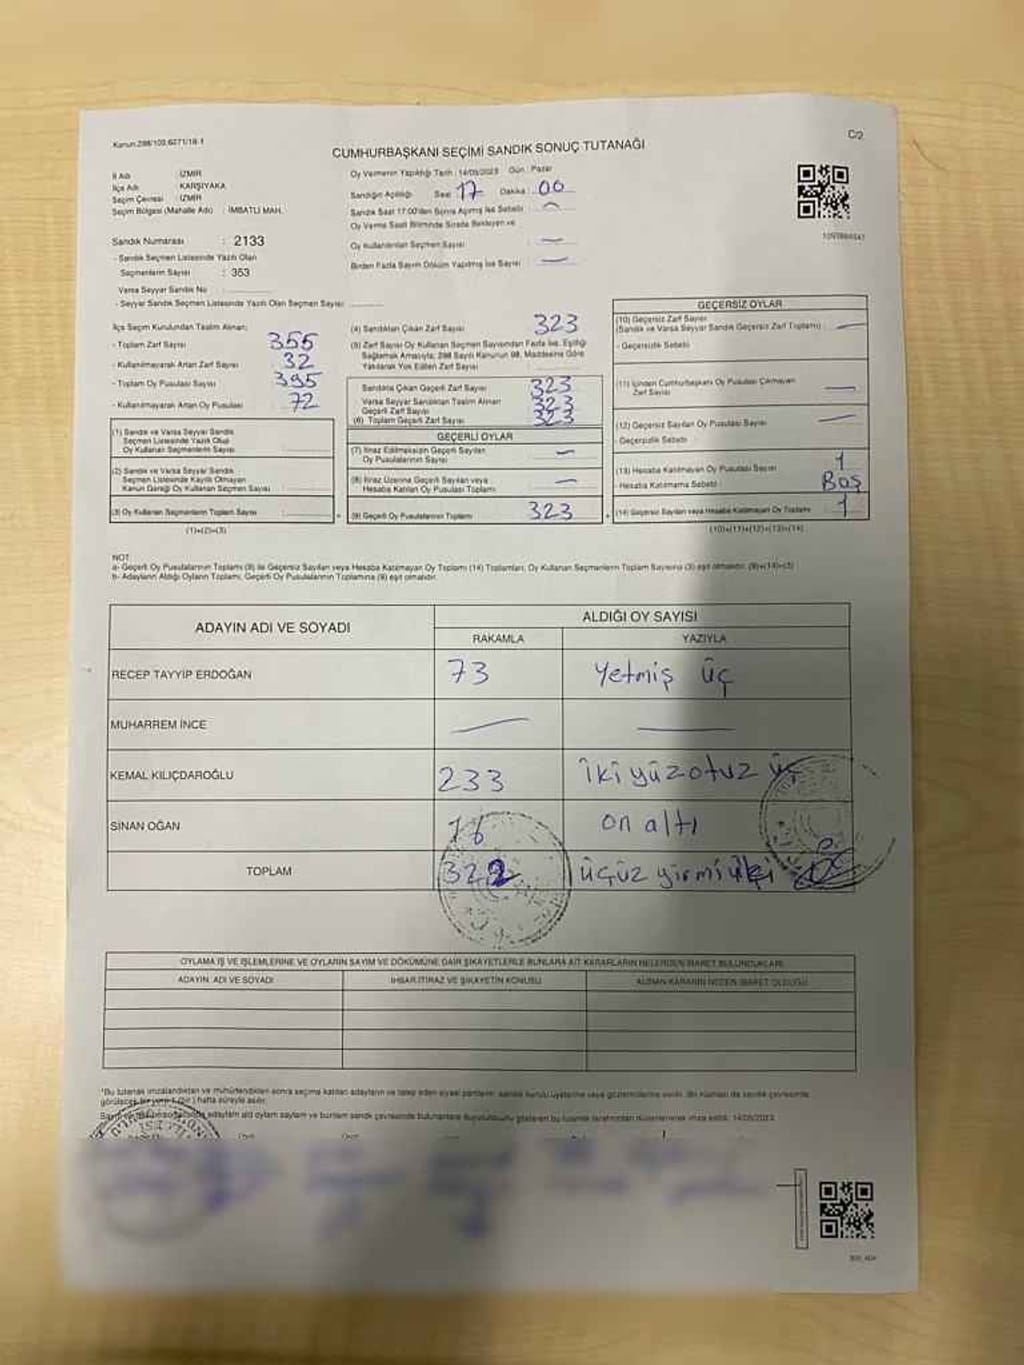 Kanun:298/103,6271/18-1
C/2
CUMHURBAŞKANI SEÇİMİ SANDIK SONUÇ TUTANAĞI
İl Adı : İZMİR
İlçe Adı : KARŞIYAKA
Seçim Çevresi : İZMİR
Seçim Bölgesi (Mahalle Adı) : İMBATLI MAH.
Oy Vermenin Yapıldığı Tarih : 14/05/2023 Gün : Pazar
Sandığın Açıldığı Saat 17 Dakika : 00
Sandık Saat 17:00'den Sonra Açılmış İse Sebebi :
Oy Verme Saati Bitiminde Sırada Bekleyen ve
Oy Kullandırılan Seçmen Sayısı
Birden Fazla Sayım Döküm Yapılmış İse Sayısı :
Sandık Numarası : 2133
- Sandık Seçmen Listesinde Yazılı Olan
Seçmenlerin Sayısı : 353
Varsa Seyyar Sandık No :
- Seyyar Sandık Seçmen Listesinde Yazılı Olan Seçmen Sayısı :
İlçe Seçim Kurulundan Teslim Alınan;
- Toplam Zarf Sayısı : 355
- Kullanılmayarak Artan Zarf Sayısı : 32
- Toplam Oy Pusulası Sayısı : 395
- Kullanılmayarak Artan Oy Pusulası : 72
(1) Sandık ve Varsa Seyyar Sandık
Seçmen Listesinde Yazılı Olup
Oy Kullanan Seçmenlerin Sayısı :
(2) Sandık ve Varsa Seyyar Sandık
Seçmen Listesinde Kayıtlı Olmayan
Kanun Gereği Oy Kullanan Seçmen Sayısı :
(3) Oy Kullanan Seçmenlerin Toplam Sayısı :
(1)+(2)=(3)
(4) Sandıktan Çıkan Zarf Sayısı : 323
(5) Zarf Sayısı Oy Kullanan Seçmen Sayısından Fazla İse, Eşitliği
Sağlamak Amacıyla; 298 Sayılı Kanunun 98. Maddesine Göre
Yakılarak Yok Edilen Zarf Sayısı :
Sandıkta Çıkan Geçerli Zarf Sayısı : 323
Varsa Seyyar Sandıktan Teslim Alınan
Geçerli Zarf Sayısı : 323
(6) Toplam Geçerli Zarf Sayısı : 323
GEÇERLİ OYLAR
(7) İtiraz Edilmeksizin Geçerli Sayılan
Oy Pusulalarının Sayısı :
(8) İtiraz Üzerine Geçerli Sayılan veya
Hesaba Katılan Oy Pusulası Toplamı :
(9) Geçerli Oy Pusulalarının Toplamı : 323
GEÇERSİZ OYLAR
(10) Geçersiz Zarf Sayısı
(Sandık ve Varsa Seyyar Sandık Geçersiz Zarf Toplamı) :
- Geçersizlik Sebebi :
(11) İçinden Cumhurbaşkanı Oy Pusulası Çıkmayan
Zarf Sayısı :
(12) Geçersiz Sayılan Oy Pusulası Sayısı :
- Geçersizlik Sebebi :
(13) Hesaba Katılmayan Oy Pusulası Sayısı : 1
- Hesaba Katılmama Sebebi : Boş
(14) Geçersiz Sayılan veya Hesaba Katılmayan Oy Toplamı : 1
(10)+(11)+(12)+(13)=(14)
NOT:
a- Geçerli Oy Pusulalarının Toplamı (9) ile Geçersiz Sayılan veya Hesaba Katılmayan Oy Toplamı (14) Toplamları, Oy Kullanan Seçmenlerin Toplam Sayısına (3) eşit olmalıdır. (9)+(14)=(3)
b- Adayların Aldığı Oyların Toplamı, Geçerli Oy Pusulalarının Toplamına (9) eşit olmalıdır.
ADAYIN ADI VE SOYADI ALDIĞI OY SAYISI
RAKAMLA YAZIYLA
RECEP TAYYİP ERDOĞAN 73 Yetmiş üç
MUHARREM İNCE
KEMAL KILIÇDAROĞLU 233 İki yüz otuz üç
SİNAN OĞAN 16 on altı
TOPLAM 322 üçüz yirmi iki
OYLAMA İŞ VE İŞLEMLERİNE VE OYLARIN SAYIM VE DÖKÜMÜNE DAİR ŞİKAYETLERLE BUNLARA AİT KARARLARIN NELERDEN İBARET BULUNDUKLARI
ADAYIN ADI VE SOYADI İHBAR İTİRAZ VE ŞİKAYETİN KONUSU ALINAN KARARIN NEDEN İBARET OLDUĞU
*Bu tutanak imzalandıktan ve mühürlendikten sonra seçime katılan adayların ve talep eden siyasi partilerin sandık kurulu üyelerine veya gözlemcilerine verilir. Bir nüshası da sandık çevresinde
14/05/2023